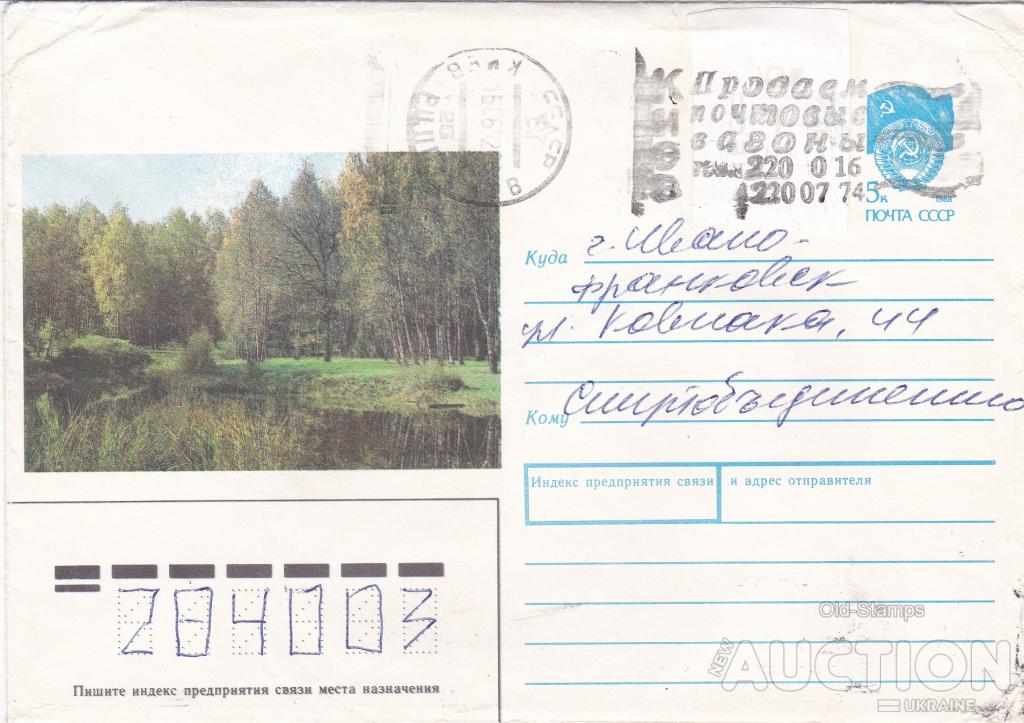 КИЕВ
СССР
КИЕВ
Продаем
почтовые
вагоны
220 0 16
220 07 74
5к
1988
ПОЧТА СССР
Куда
г. Ивано-
франковск
ул. Ковпака, 44
Кому
Спиртобъединению
Индекс предприятия связи
и адрес отправителя
284003
Пишите индекс предприятия связи места назначения
Old-Stamps
NEW
AUCTION
UKRAINE